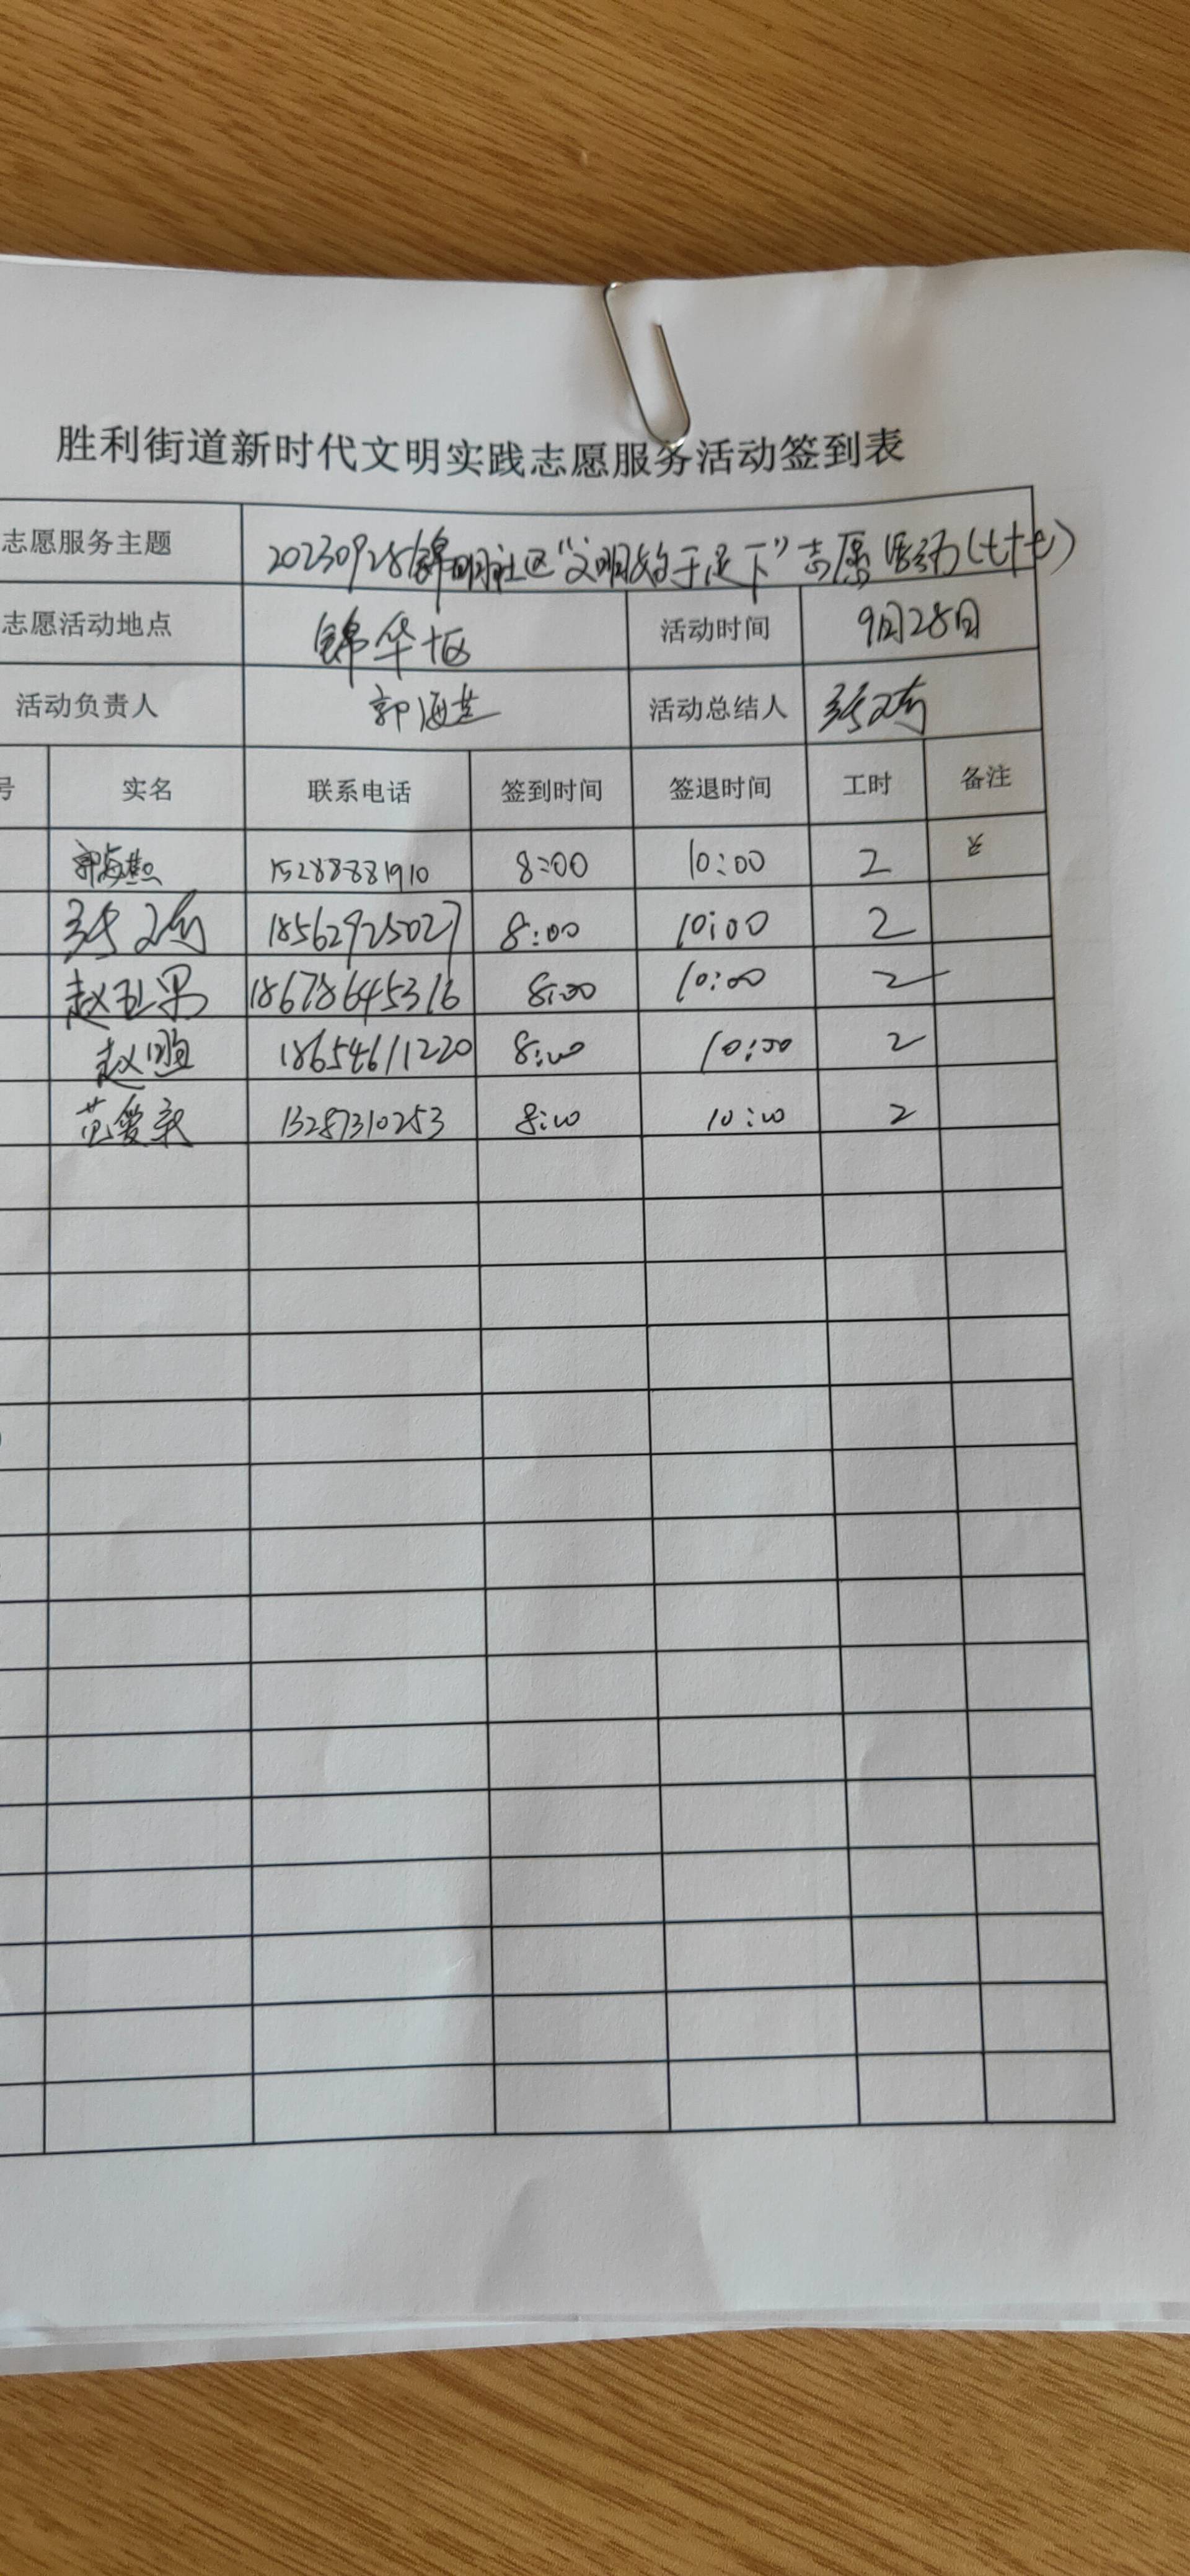 胜利街道新时代文明实践志愿服务活动签到表
志愿服务主题 20230928锦明社区“文明始于足下”志愿活动(七十七)
志愿活动地点 锦华七区 活动时间 9月28日
活动负责人 郭海燕 活动总结人 张文
号 实名 联系电话 签到时间 签退时间 工时 备注
郭海燕 15288881910 8:00 10:00 2
张文 18562925027 8:00 10:00 2
赵 男 18678645316 8:00 10:00 2
赵 18654611220 8:00 10:00 2
范爱 13287310253 8:00 10:00 2